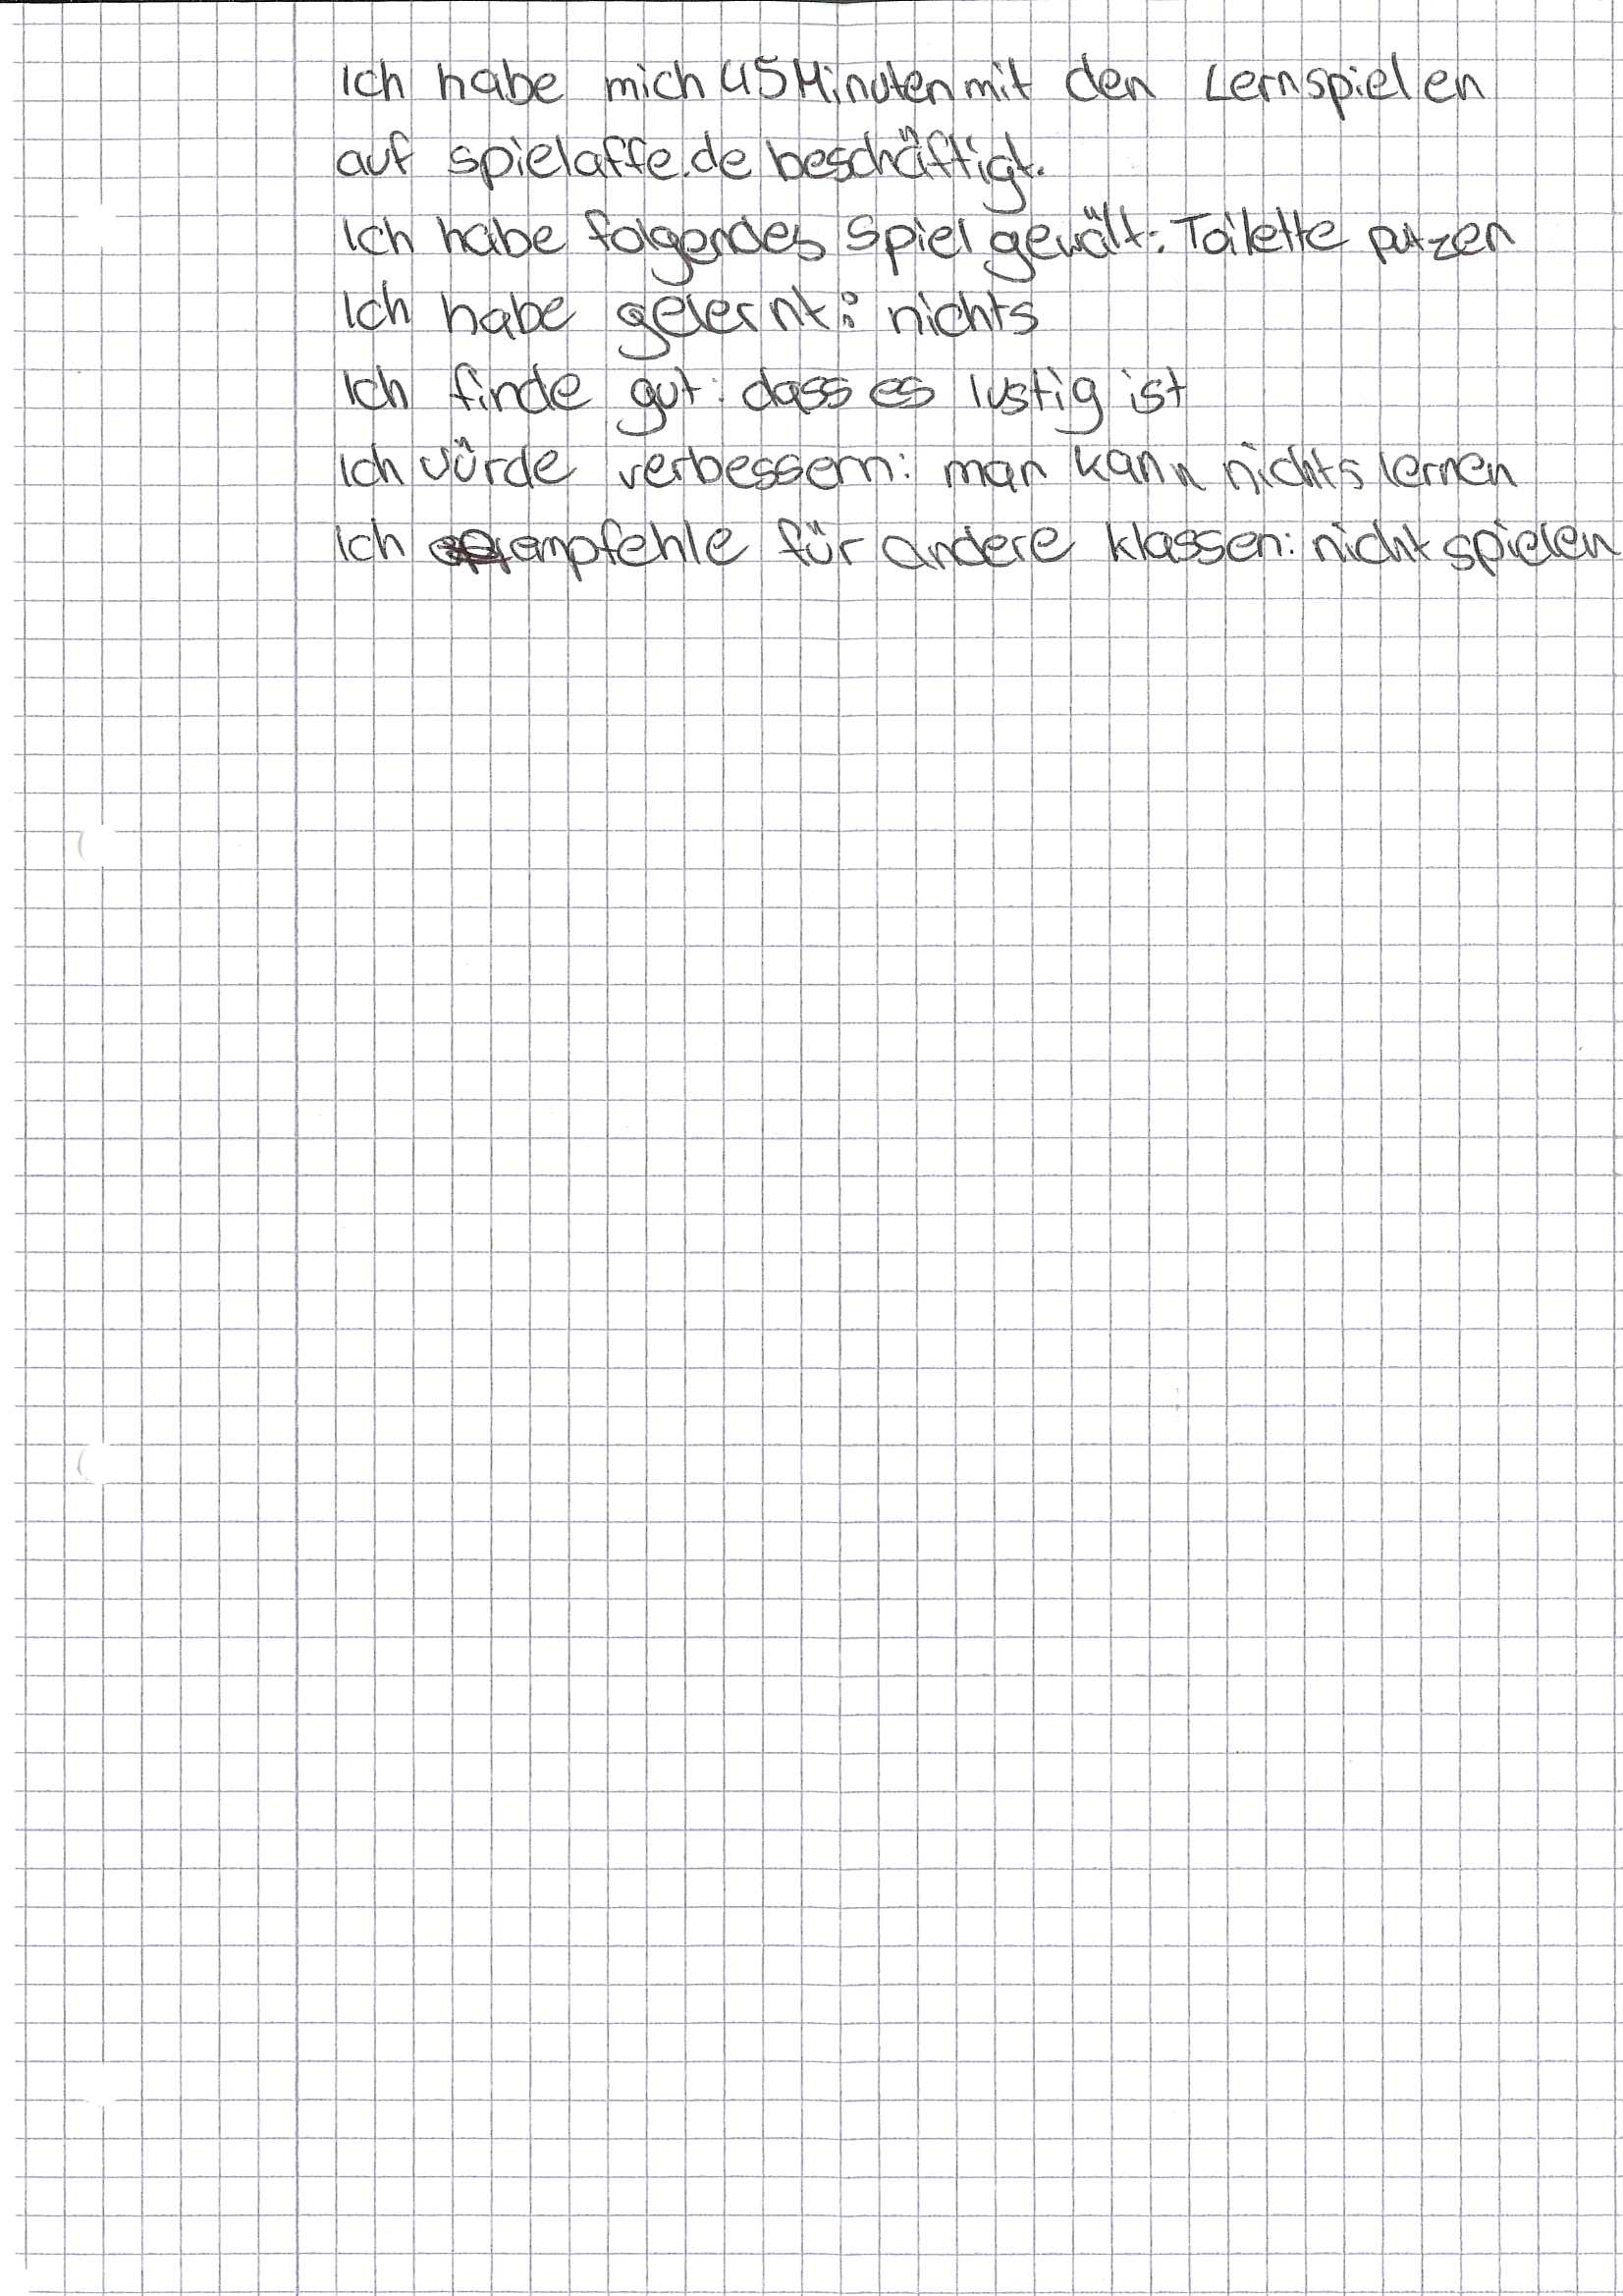 Ich habe mich 45 Minuten mit den Lernspielen
auf spielaffe.de beschäftigt.
Ich habe folgendes Spiel gewält: Toilette putzen
Ich habe gelernt: nichts
Ich finde gut: dass es lustig ist
Ich würde verbessern: man kann nichts lernen
Ich empfehle für andere klassen: nicht spielen